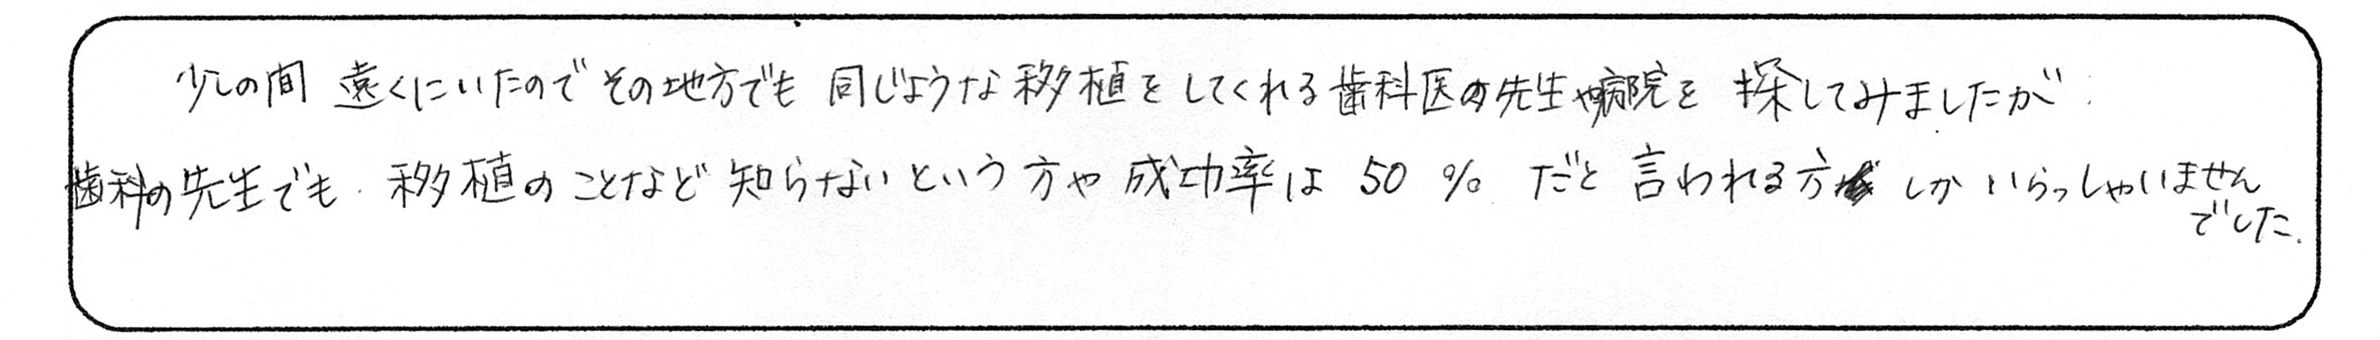 少しの間 遠くにいたのでその地方でも 同じような移植をしてくれる歯科医の先生や病院を 探してみましたが
歯科の先生でも 移植のことなど知らないという方や成功率は 50 % だと言われる方しかいらっしゃいません
でした.